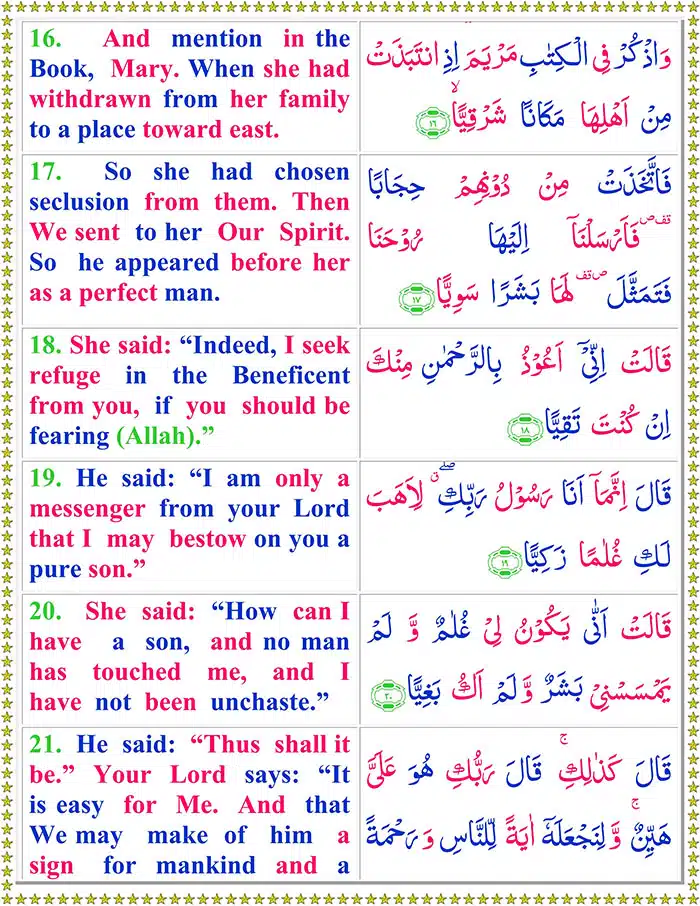 16. And mention in the
Book, Mary. When she had
withdrawn from her family
to a place toward east.
وَاذْكُرْ فِي الْكِتٰبِ مَرْيَمَ اِذِ انْتَبَذَتْ
مِنْ اَهْلِهَا مَكَانًا شَرْقِيًّا ۙ ١٦
17. So she had chosen
seclusion from them. Then
We sent to her Our Spirit.
So he appeared before her
as a perfect man.
فَاتَّخَذَتْ مِنْ دُوْنِهِمْ حِجَابًا
قف ص فَاَرْسَلْنَاۤ اِلَيْهَا رُوْحَنَا
فَتَمَثَّلَ ص قف لَهَا بَشَرًا سَوِيًّا ١٧
18. She said: “Indeed, I seek
refuge in the Beneficent
from you, if you should be
fearing (Allah).”
قَالَتْ اِنِّيْۤ اَعُوْذُ بِالرَّحْمٰنِ مِنْكَ
اِنْ كُنْتَ تَقِيًّا ١٨
19. He said: “I am only a
messenger from your Lord
that I may bestow on you a
pure son.”
قَالَ اِنَّمَاۤ اَنَا رَسُوْلُ رَبِّكِ ۖ ق لِاَهَبَ
لَكِ غُلٰمًا زَكِيًّا ١٩
20. She said: “How can I
have a son, and no man
has touched me, and I
have not been unchaste.”
قَالَتْ اَنّٰى يَكُوْنُ لِيْ غُلٰمٌ وَّ لَمْ
يَمْسَسْنِيْ بَشَرٌ وَّ لَمْ اَكُ بَغِيًّا ٢٠
21. He said: “Thus shall it
be.” Your Lord says: “It
is easy for Me. And that
We may make of him a
sign for mankind and a
قَالَ كَذٰلِكِ ۚ قَالَ رَبُّكِ هُوَ عَلَيَّ
هَيِّنٌ ۚ وَّ لِنَجْعَلَهٗۤ اٰيَةً لِّلنَّاسِ وَ رَحْمَةً